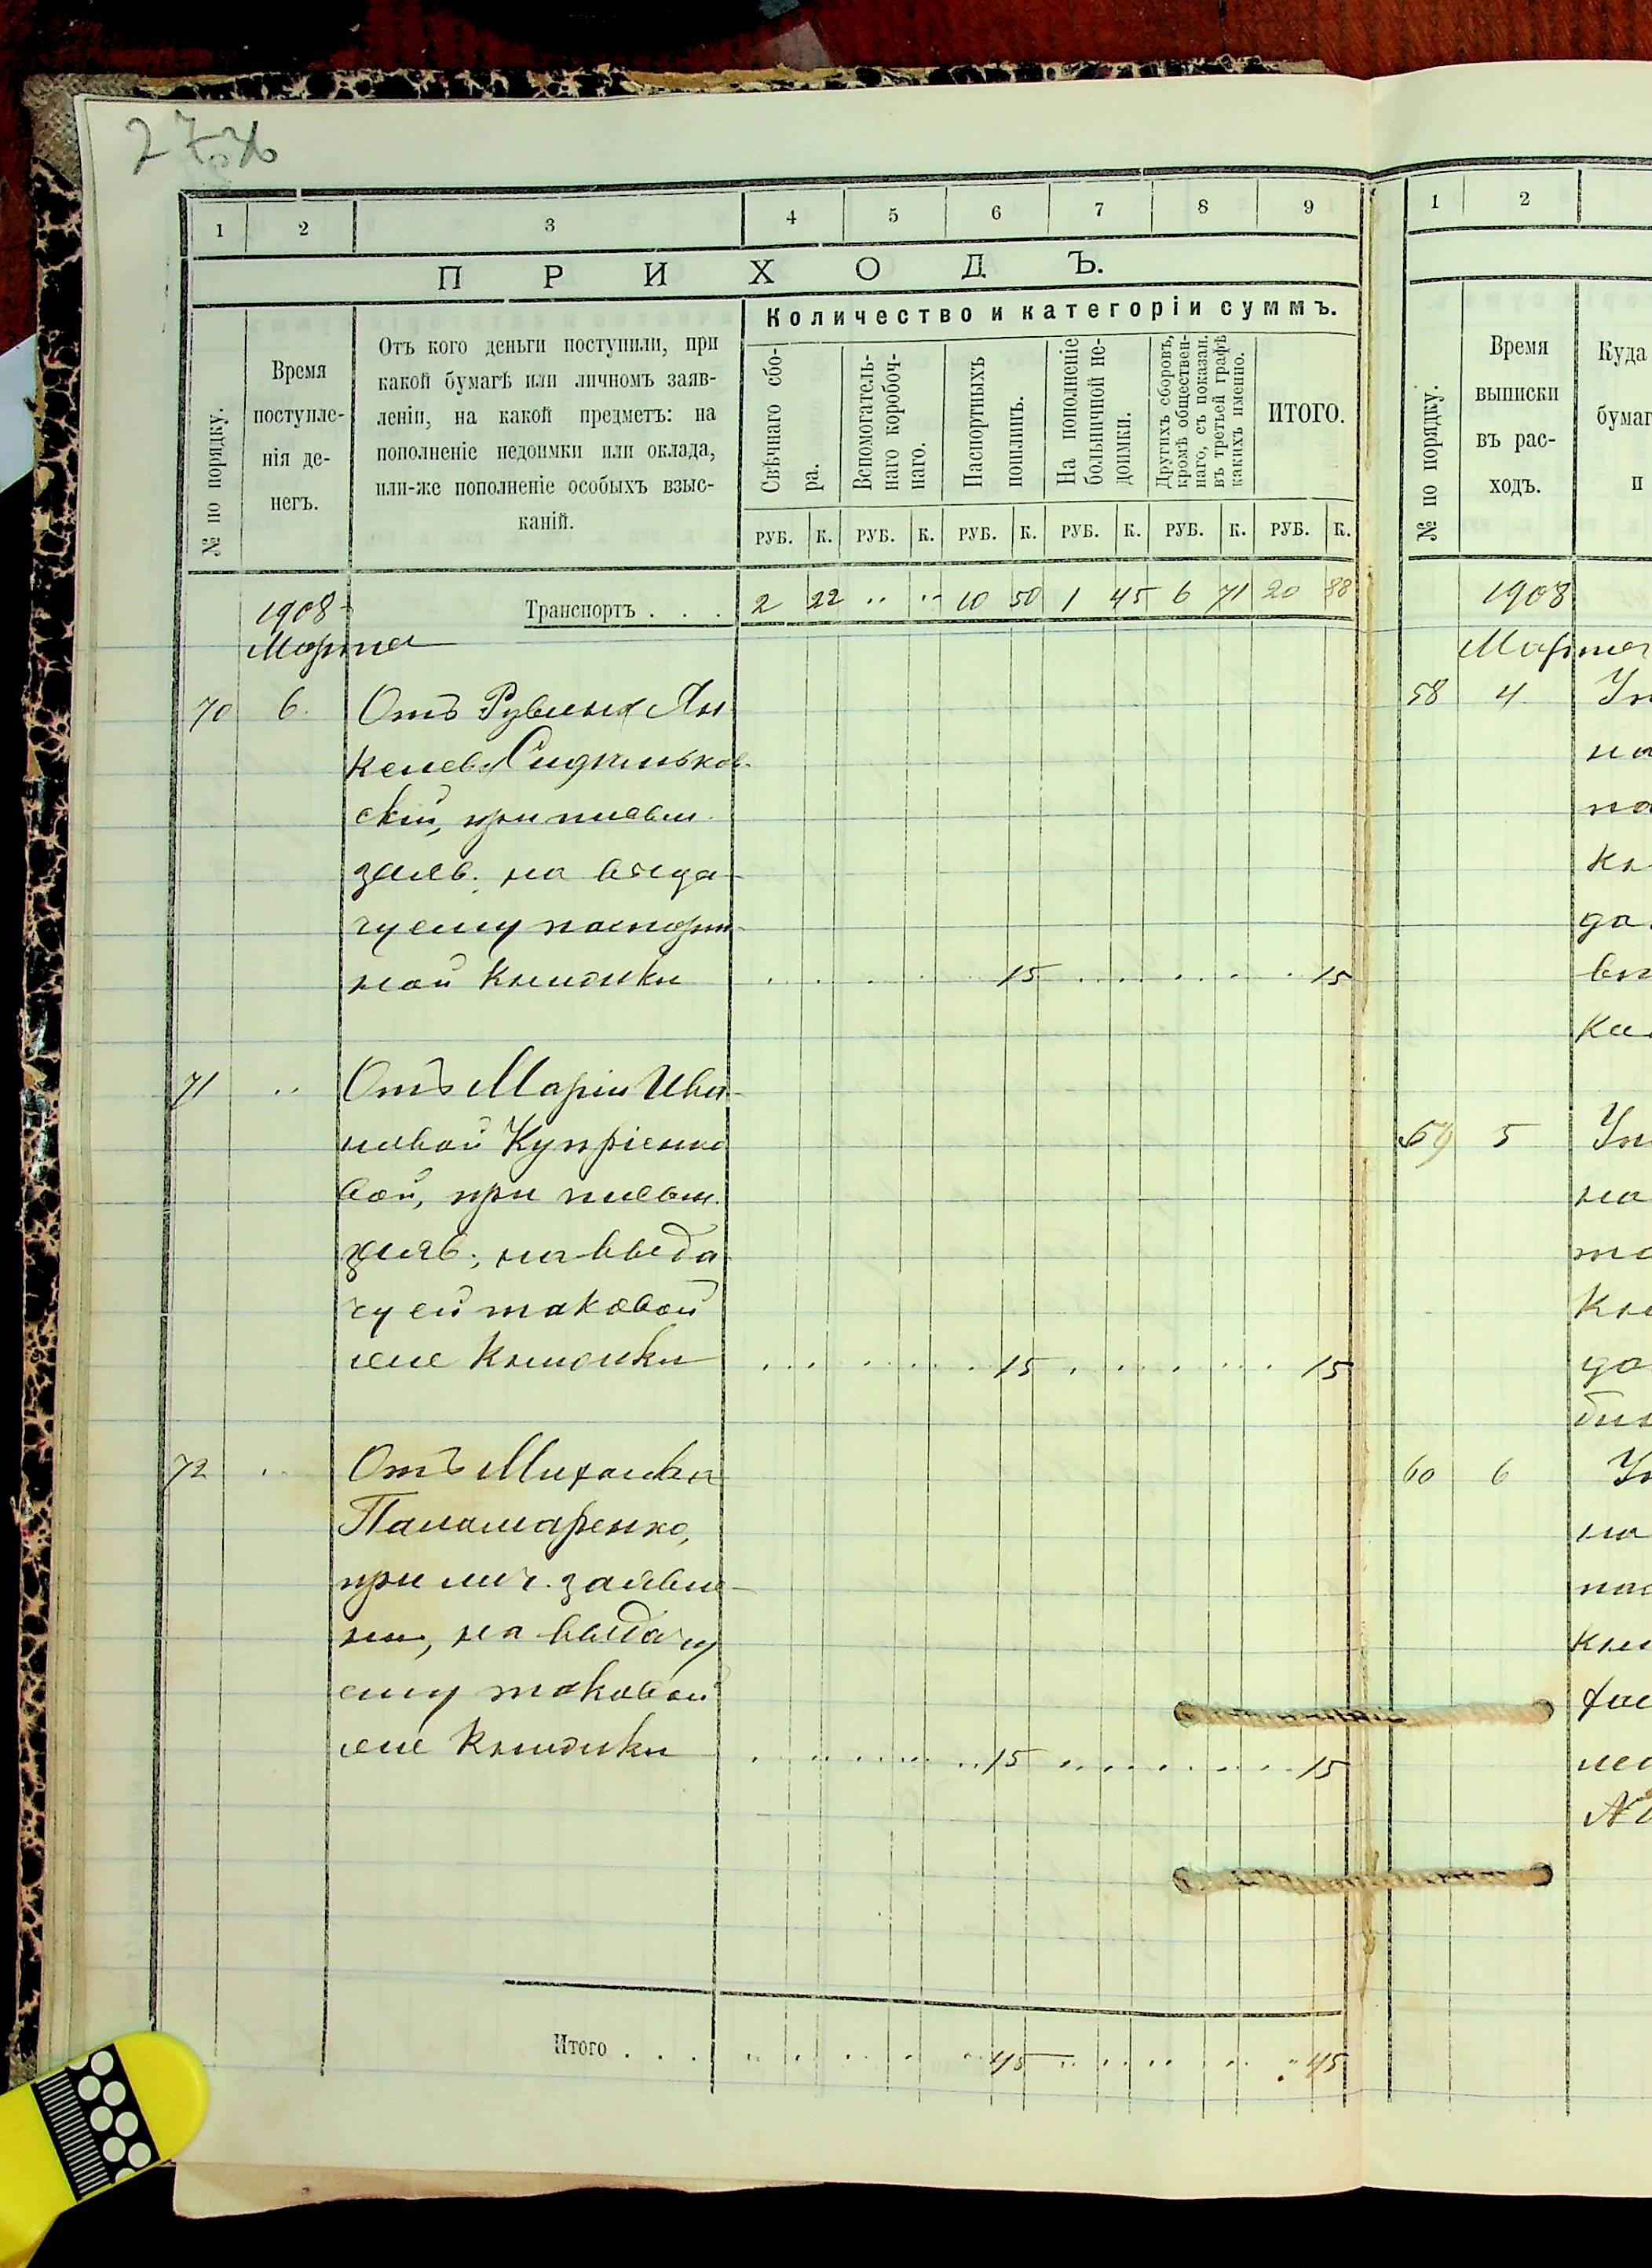 1 2 3 4 5 6 7 8 9
ПРИХОДЪ.
№ по порядку.
Время
поступле-
нія де-
негъ.
Отъ кого деньги поступили, при
какой бумагѣ или личномъ заяв-
леніи, на какой предметъ: на
пополненіе недоимки или оклада,
или-же пополненіе особыхъ взыс-
каній.
Количество и категоріи суммъ.
Свѣчнаго сбо-
ра.
Вспомогатель-
наго коробоч-
наго.
Паспортныхъ
пошлинъ.
На пополненіе
больничной не-
доимки.
Другихъ сборовъ,
кромѣ обществен-
наго, съ показан.
въ третьей графѣ
какихъ именно.
ИТОГО.
РУБ. К. РУБ. К. РУБ. К. РУБ. К. РУБ. К. РУБ. К.
1908
Транспортъ . . . 2 22 " " 10 50 1 45 6 71 20 88
Марта
70 6. Отъ Рувина Ян
келев.
скій, при письм.
заяв. на выда-
чу ему паспорт-
ной книжки 15 15
71 " Отъ Маріи Ива-
новой Купріенко
вой, при письм.
заяв. на выда-
чу ей таковой
же книжки 15 15
72 " Отъ Михаила
Паламаренко,
при лич. заявле-
ніи, на выдачу
ему таковой
же книжки 15 15
Итого . . . 45 45
1 2
№ по порядку.
Время
выписки
въ рас-
ходъ.
Куда
бумаг
и
1908
Марта
58 4
на
59 5
на
60 6
на